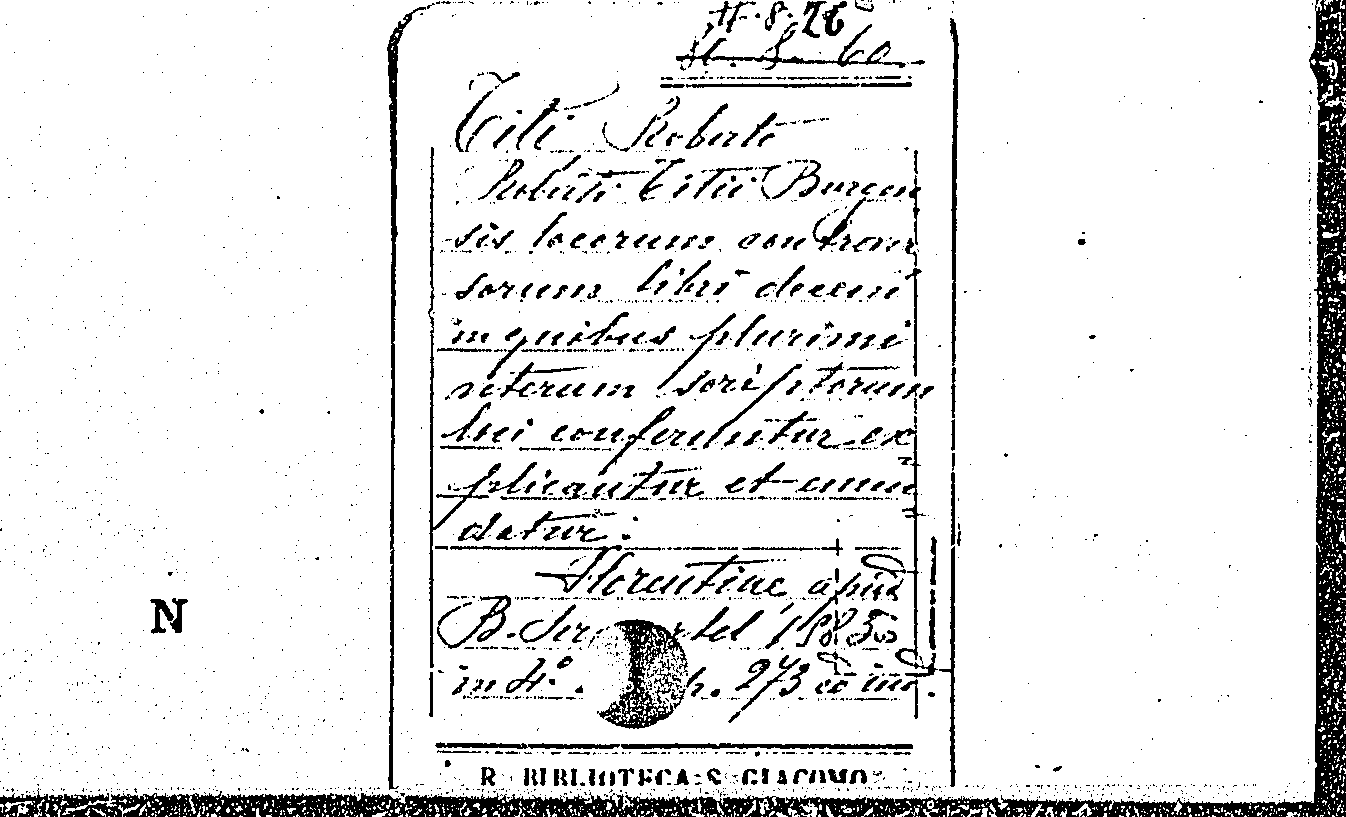 H.8.26
H. 8. 60
Titi Roberto
Roberti Titii Burgen
sis locorum controver
sorum libri decem
in quibus plurimi
veterum scriptorum
loci conferuntur ex
plicantur et emen
datur.
Florentiae apud
B. Ser tel 1583
in 4°. p. 273 e ind.
N
R. BIBLIOTECA S. GIACOMO